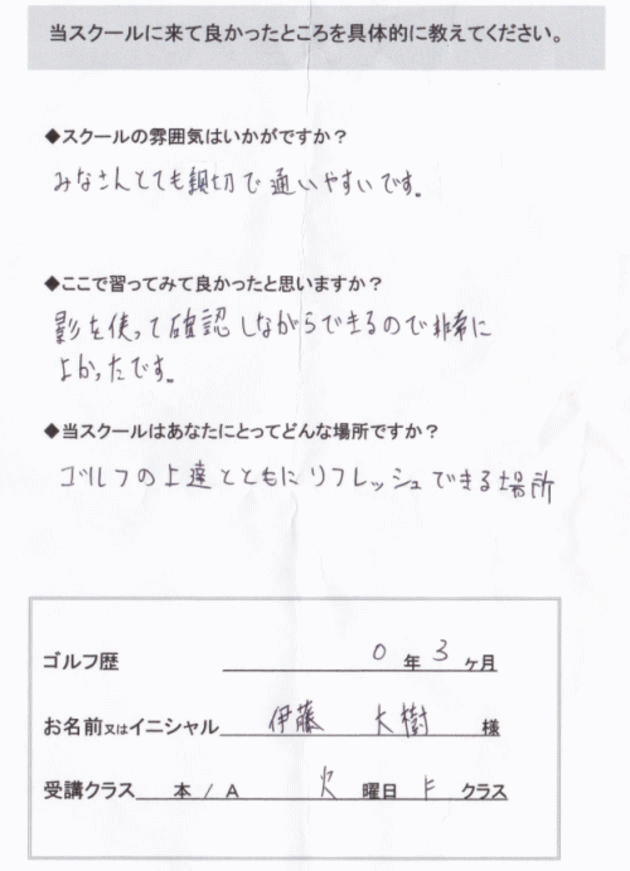 当スクールに来て良かったところを具体的に教えてください。
◆スクールの雰囲気はいかがですか？
みなさんとても親切で通いやすいです。
◆ここで習ってみて良かったと思いますか？
影を使って確認しながらできるので非常に
よかったです。
◆当スクールはあなたにとってどんな場所ですか？
ゴルフの上達とともにリフレッシュできる場所
ゴルフ歴 0 年 3 ヶ月
お名前又はイニシャル 伊藤 大樹 様
受講クラス 本 / A 火 曜日 F クラス